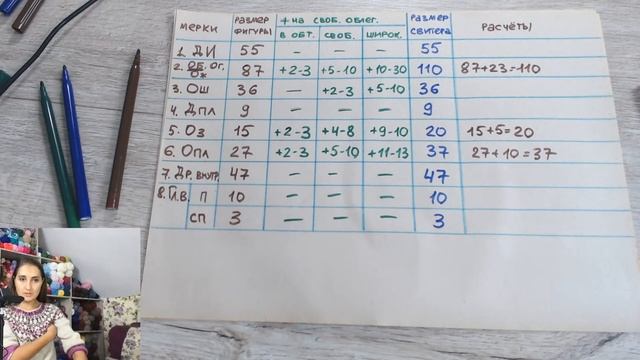 МЕРКИ РАЗМЕР ФИГУРЫ + НА СВОБ. ОБЛЕГ. РАЗМЕР СВИТЕРА РАСЧЁТЫ
В ОБТ. СВОБ. ШИРОК.
1. ДИ 55 – – – 55
2. ОБ. ОГ. ОЖ 87 +2-3 +5-10 +10-30 110 87+23=110
3. ОШ 36 – +2-3 +5-10 36
4. ДПЛ 9 – – – 9
5. ОЗ 15 +2-3 +4-8 +9-10 20 15+5=20
6. ОПЛ 27 +2-3 +5-10 +11-13 37 27+10=37
7. ДР. ВНУТР. 47 – – – 47
8. ГЛ. В. П 10 – – – 10
СП 3 – – – 3